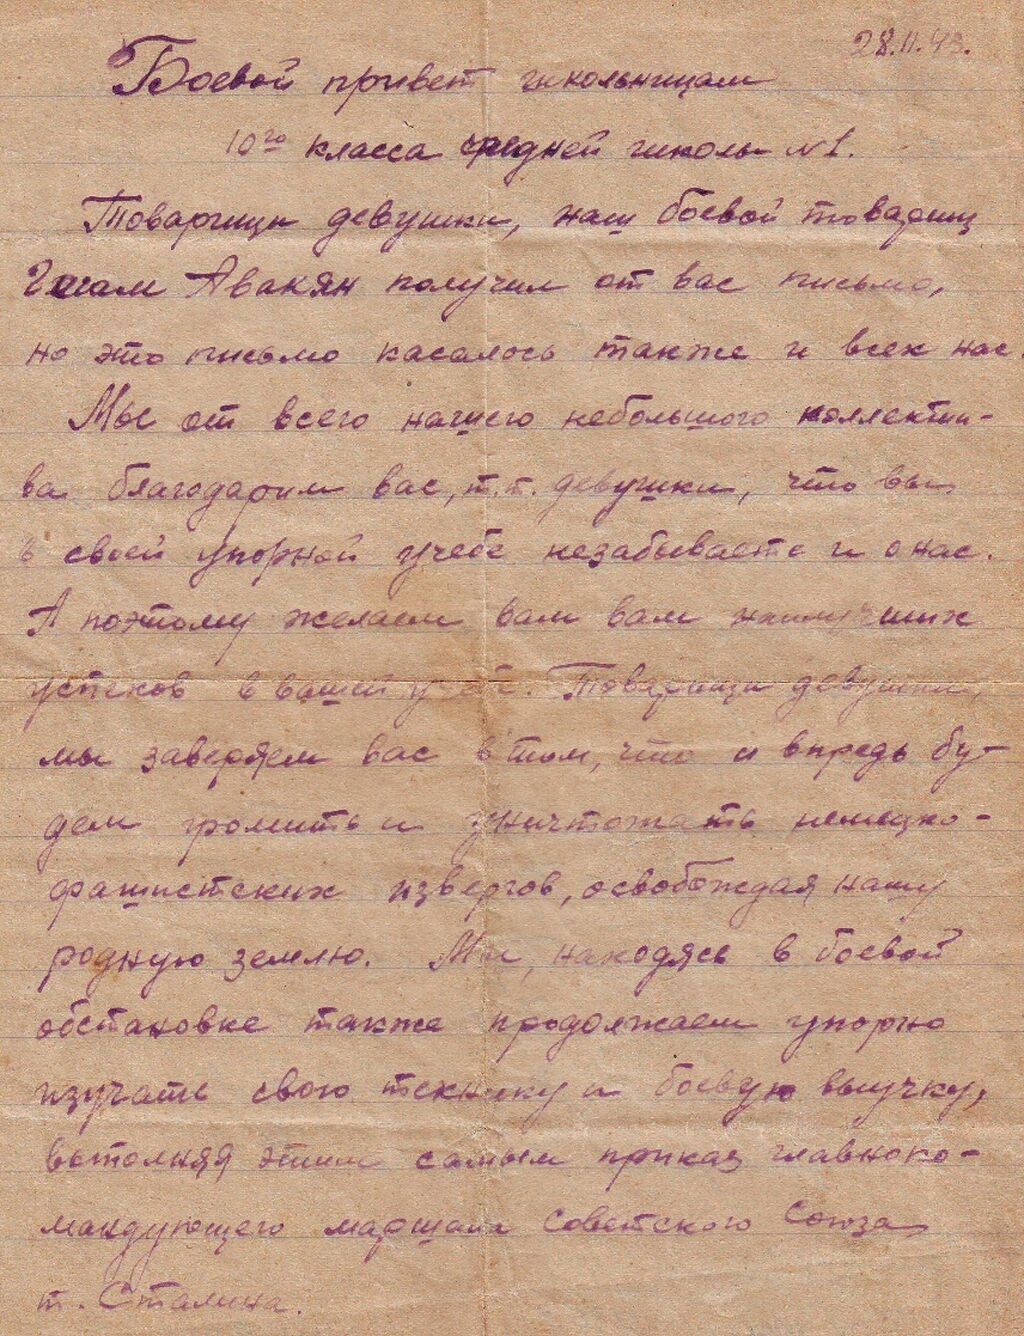 28.11.43.
Боевой привет школьницам
10го класса средней школы №1.
Товарищи девушки, наш боевой товарищ
Авакян получил от вас письмо,
но это письмо касалось также и всех нас.
Мы от всего нашего небольшого коллекти-
ва благодарим вас, т.т. девушки, что вы
в своей упорной учебе незабываете и о нас.
А поэтому желаем вам вам наилучших
успехов в вашей учебе. Товарищи девушки,
мы заверяем вас в том, что и впредь бу-
дем громить и уничтожать немецко-
фашистских извергов, освобождая нашу
родную землю. Мы, находясь в боевой
обстановке также продолжаем упорно
изучать свою технику и боевую выучку,
выполняя этим самым приказ главноко-
мандующего маршала Советского Союза
т. Сталина.